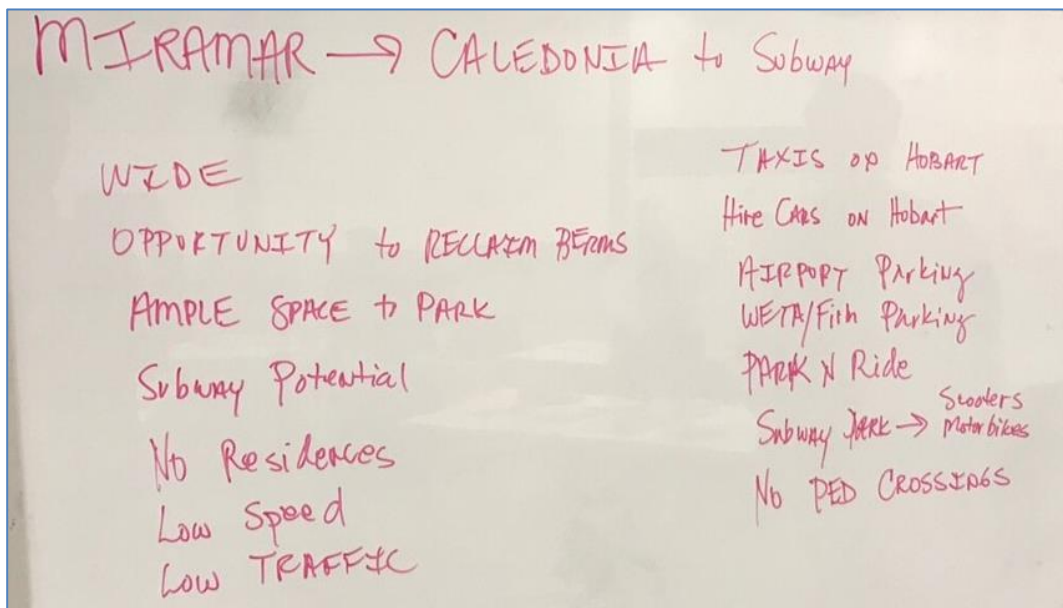 MIRAMAR → CALEDONIA to Subway
WIDE
OPPORTUNITY to RECLAIM BERMS
AMPLE SPACE to PARK
Subway Potential
No Residences
Low Speed
Low TRAFFIC
TAXIS on HOBART
Hire CARS on Hobart
AIRPORT Parking
WETA/Firth Parking
PARK N Ride
Subway PARK → Scooters
Motorbikes
No PED CROSSINGS